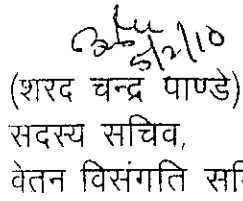 5/2/10
(शरद चन्द्र पाण्डे)
सदस्य सचिव,
वेतन विसंगति